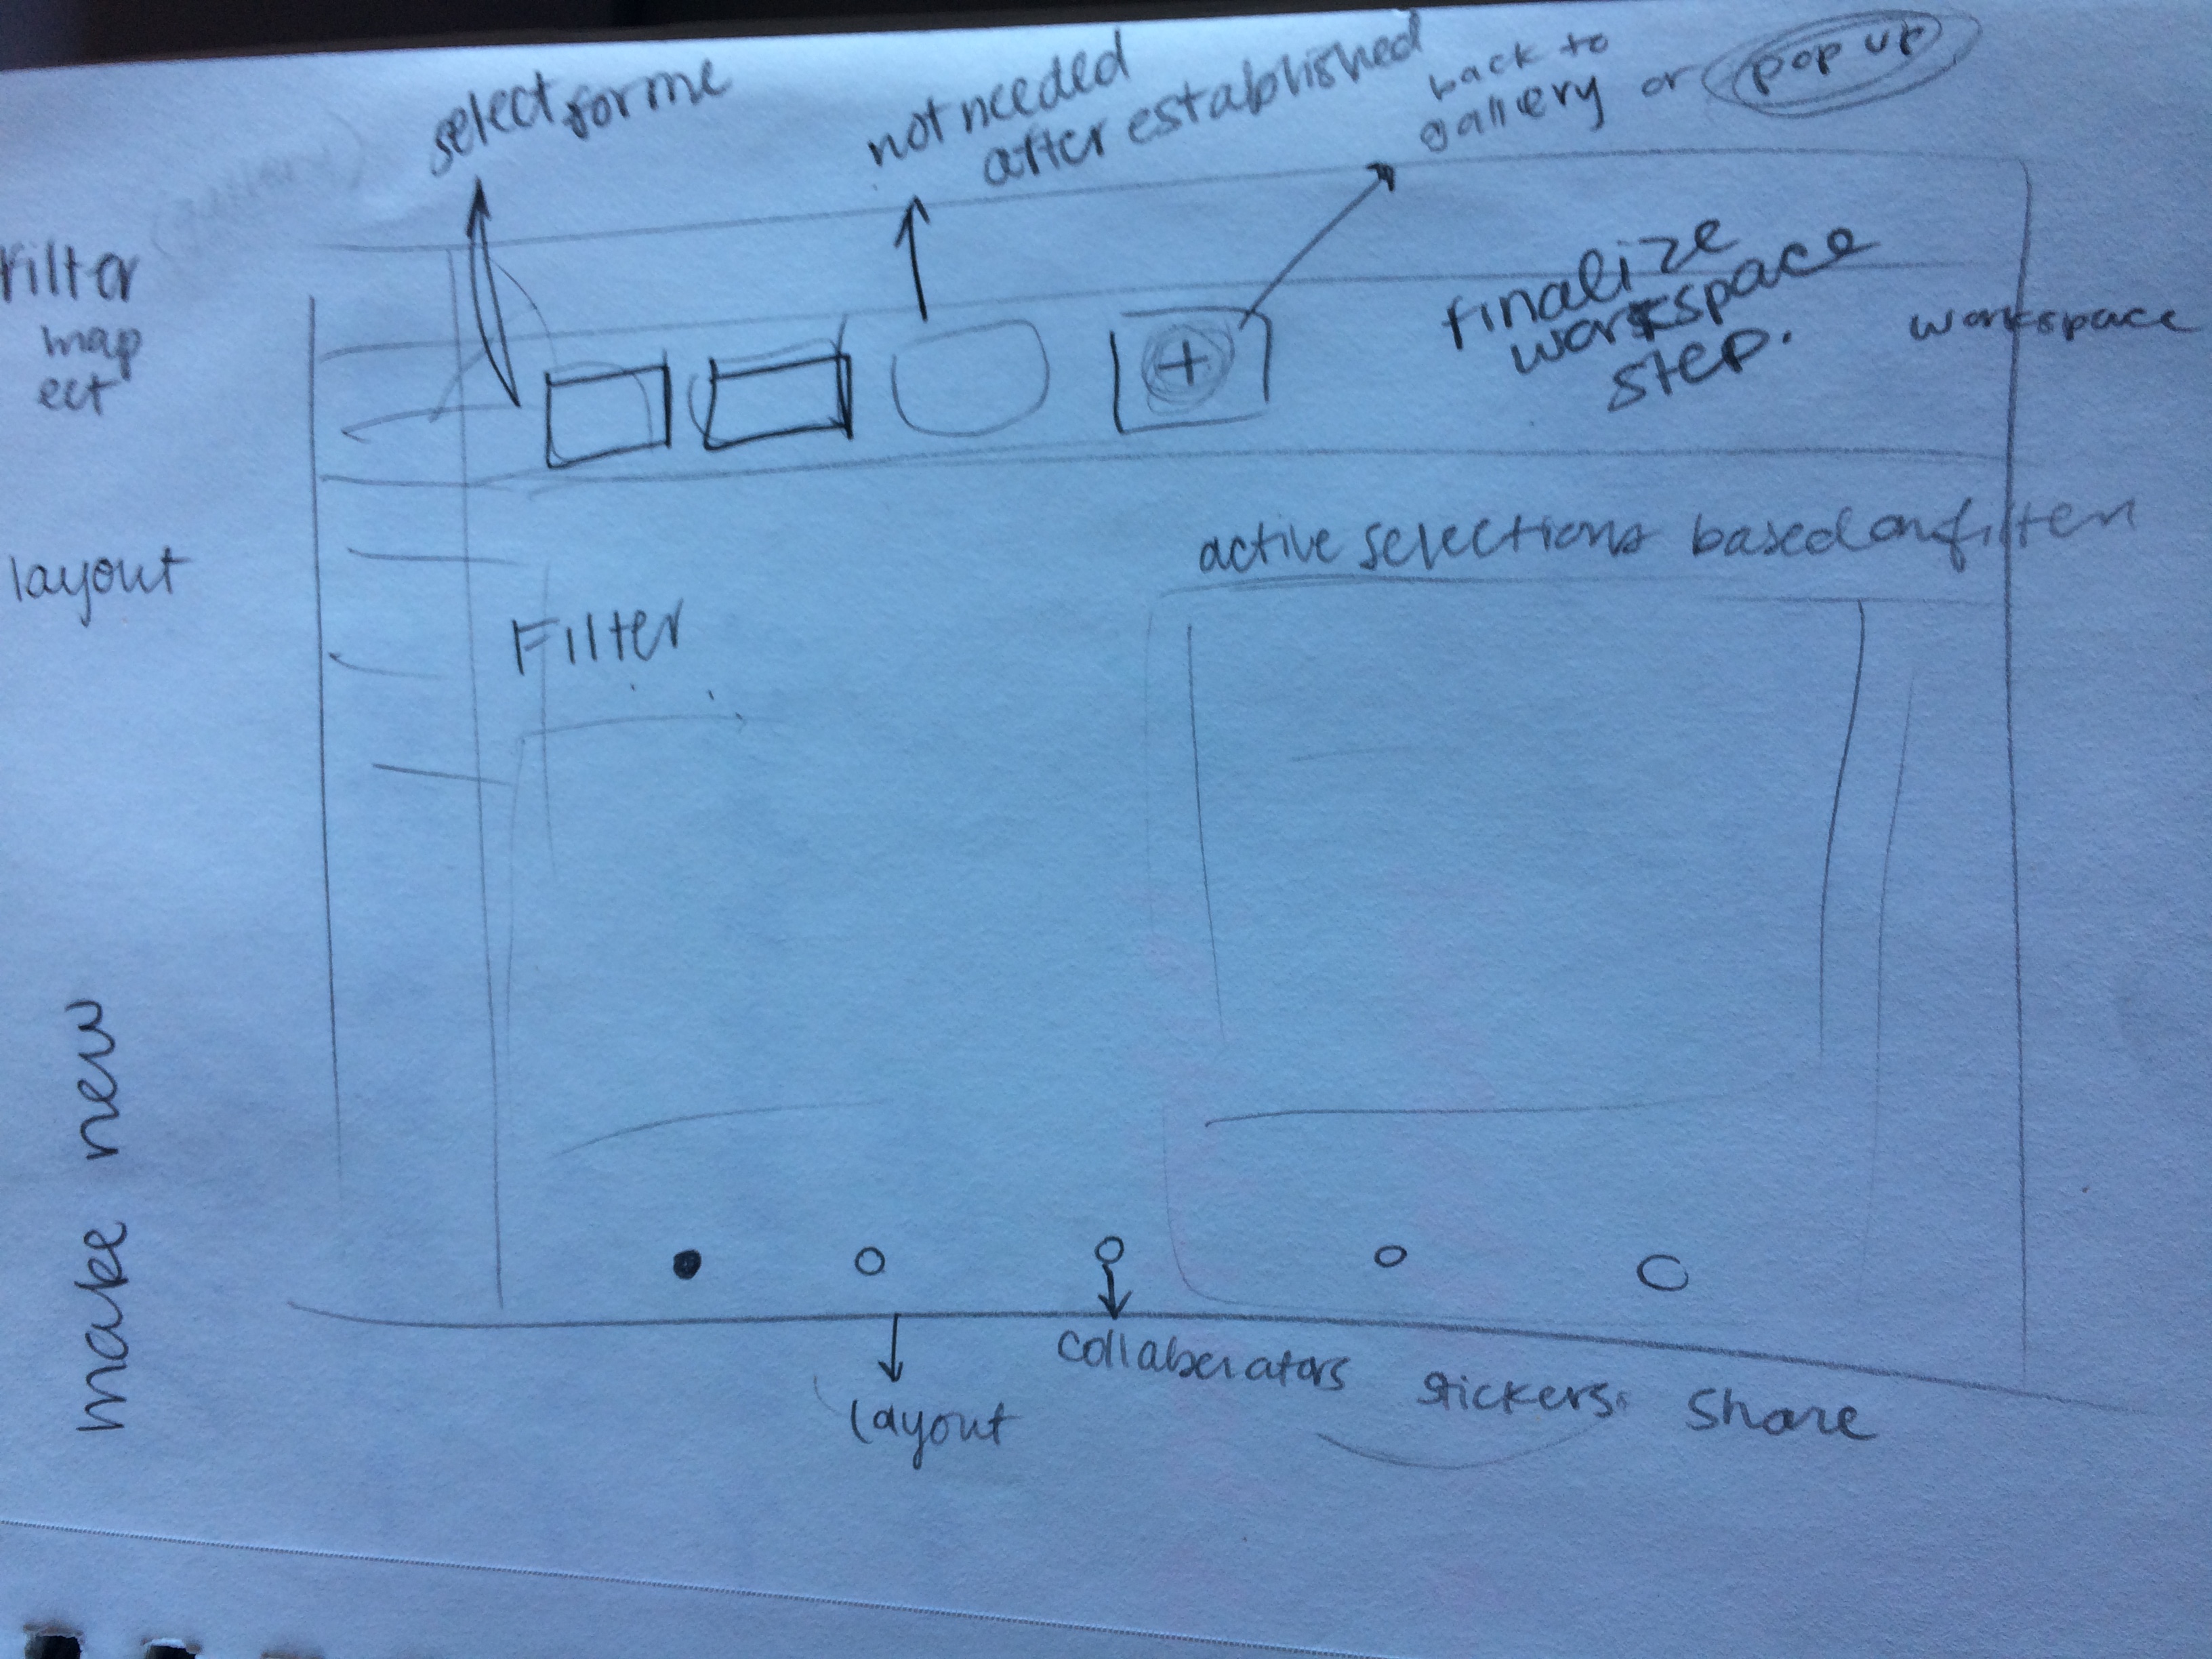 select for me
not needed
after established
back to
gallery or pop up
(gallery)
Filter
map
ect
finalize
workspace
step.
workspace
+
layout
active selections based on filter
Filter
make new
collaberators
layout
stickers
Share